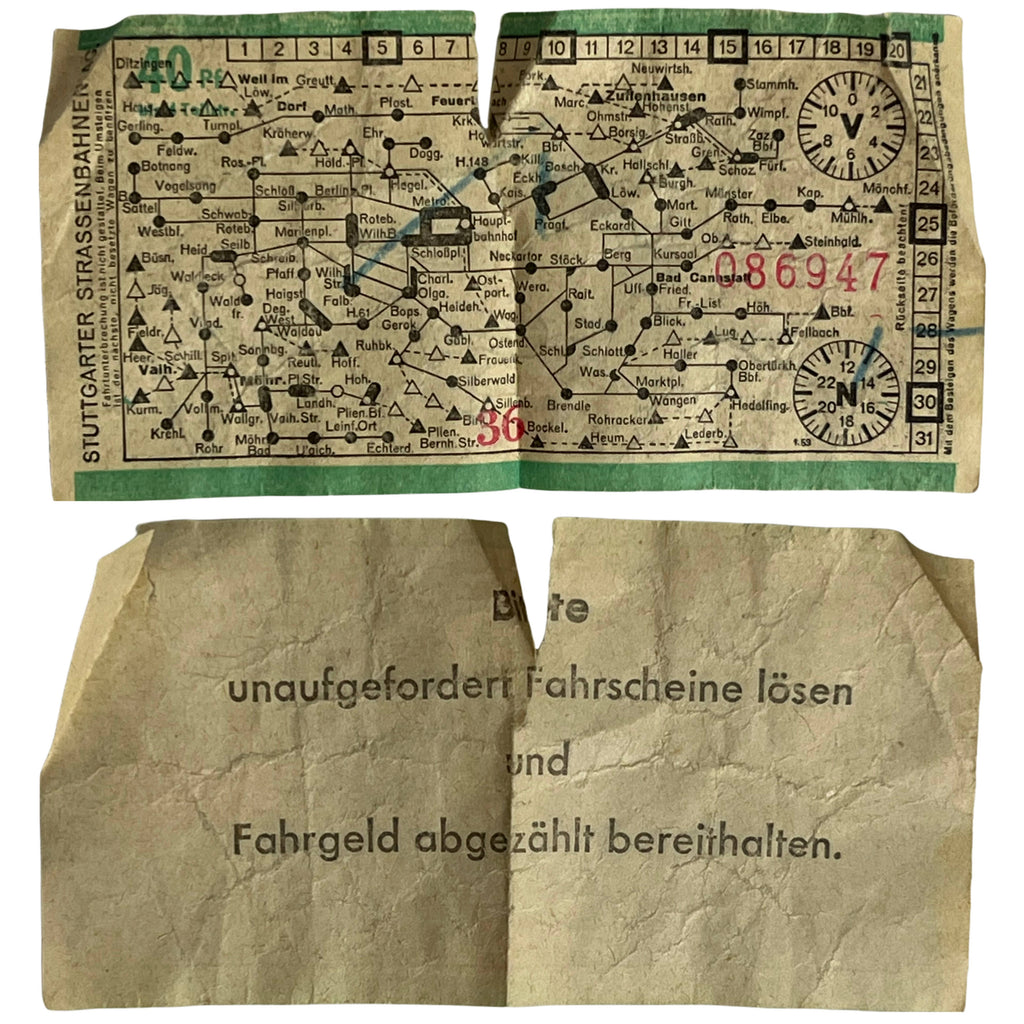 STUTTGARTER STRASSENBAHNEN AG
Fahrtunterbrechung ist nicht gestattet. Beim Umsteigen
ist der nächste, nicht besetzte Wagen zu benützen.
40 Pf
1 2 3 4 5 6 7 8 9 10 11 12 13 14 15 16 17 18 19 20
21
22
23
24
25
26
27
28
29
30
31
Ditzingen
Löw.
Weil im
Dorf
Greutt.
Feuerbach
Marc.
Neuwirtsh.
Zuffenhausen
Hohenst.
Stammh.
Wimpf.
Gerling.
Turnpl.
Math.
Post.
Krk.
Ohmstr.
Rath.
Feldw.
Kröherw.
Ehr.
Dogg.
Bbf.
Borsig.
Straßb.
Zaz.
Bbf.
Botnang
Ros.-Pl.
Höld.-Pl.
H.148
Kill.
Hallschl.
Schoz.
Fürf.
Vogelsang
Schloß
Berlin.Pl.
Hegel.
Eckh.
Kr.
Burgh.
Sattel
Schwab.
Metro.
Kais.
Löw.
Mart.
Münster
Kap.
Mönchf.
Westbf.
Roteb.
Marienpl.
Roteb.
Wilh.B.
Haupt-
bahnhof
Pragf.
Eckardt
Gilt
Rath.
Elbe.
Mühlh.
Heid
Seilb.
Schreib.
Schloßpl.
Neckartor
Stöck.
Berg
Kursaal
Ob.
Steinhald.
Büsn.
Waldeck
Pfaff
Wilh.
Str.
Charl.
Ost-
port.
Bad Cannstatt
086947
Jäg.
Wald-
fr.
Haigst
Falb.
Olga.
Heideh.
Wera.
Rait.
Uff
Fried.
Fr.-List
Höh.
Bbf.
Fieldr.
Deg.
West
Waldau
H.61
Bops.
Gerok
Wag.
Stad.
Blick.
Lug.
Fellbach
Heer.
Schill.
Spit.
Sonnbg.
Reutl.
Hoff.
Ruhbk.
Gabl.
Ostend
Frauenk.
Schl.
Schlott
Haller
Obertürkh.
Bbf.
Vaih.
Möhr.
Pl.Str.
Hoh.
Silberwald
Was.
Marktpl.
Kurm.
Vollm.
Wallgr.
Vaih.Str.
Plien.Bf.
Landh.
Sillenb.
Brendle
Wangen
Hedelfing.
Krehl.
Leinf.Ort
Plien.
36
Rohracker
Rohr
Möhr
Bad
U'aich.
Echterd.
Bernh.Str.
Bockel.
Heum.
Lederb.
V
0 2 4 6 8 10
N
12 14 16 18 20 22
1.53
Rückseite beachten!
Mit dem Besteigen des Wagens werden die Beförderungsbedingungen anerkannt
Bitte
unaufgefordert Fahrscheine lösen
und
Fahrgeld abgezählt bereithalten.